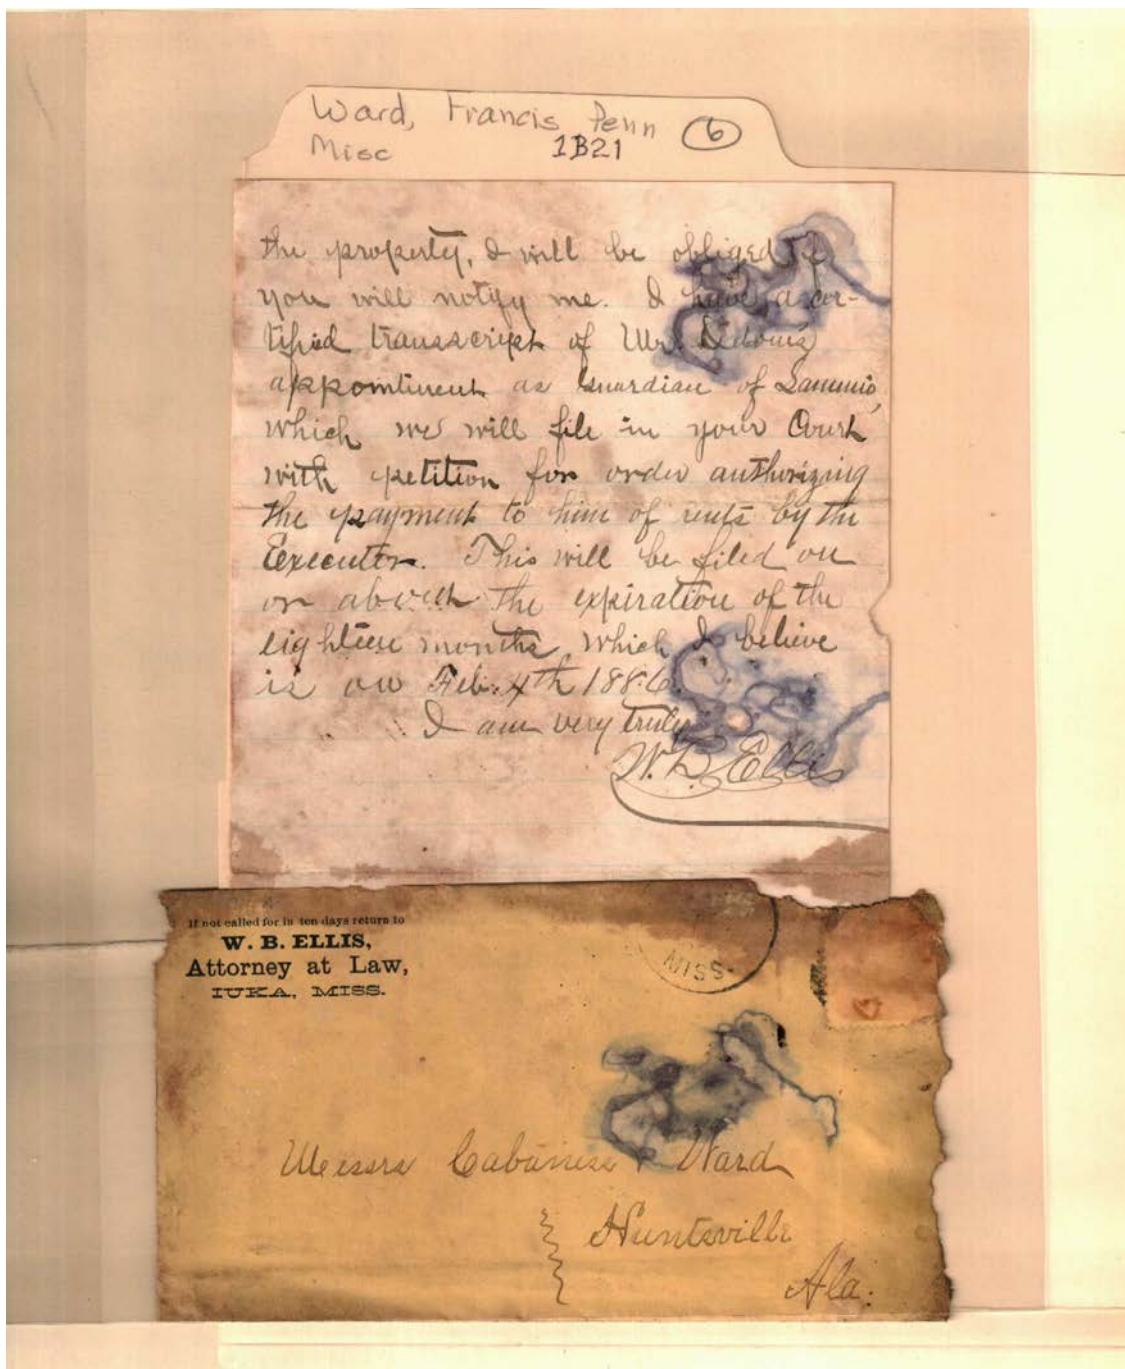 Ward, Francis Penn 6
Misc 1B21
the property, I will be obliged if
you will notify me. I have a cer-
tified transcript of Mr.
appointment as Guardian of Sammie,
which we will file in your Court
with petition for order authorizing
the payment to him of rents by the
Executor. This will be filed on
or about the expiration of the
eighteen months, which I believe
is on Feb. 4th 1886.
I am very truly
W. B. Ellis
If not called for in ten days return to
W. B. ELLIS,
Attorney at Law,
IUKA, MISS.
MISS.
Messrs Cabaniss & Ward
Huntsville
Ala.